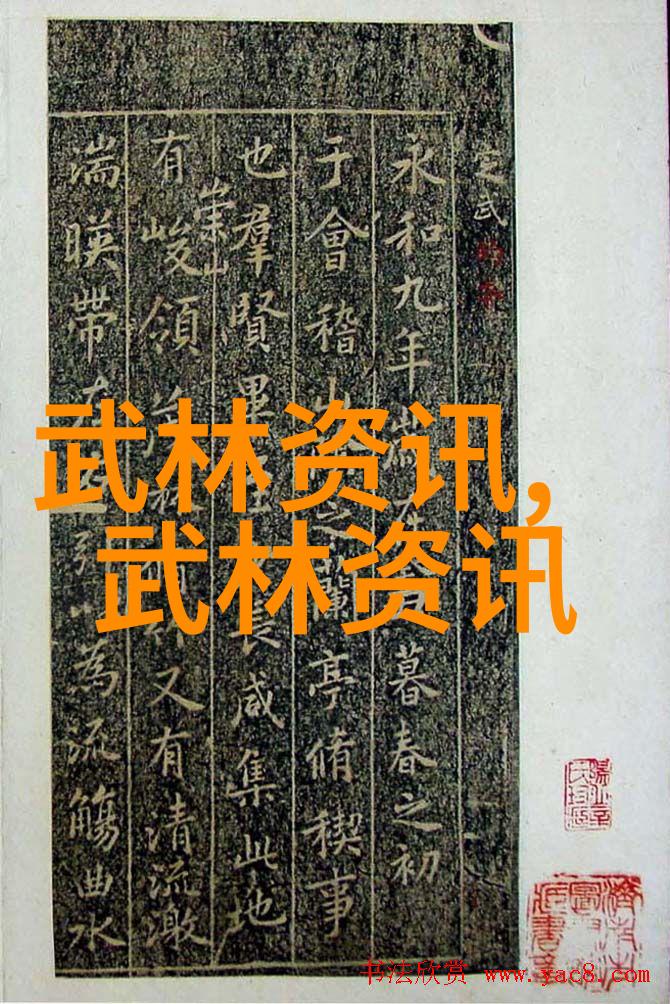 定武
永和九年歲在暮春之初
于會稽山之蘭亭脩稧事
也羣賢畢長咸集此地
崇山
有峻領又有清流激
湍暎帶左引以為流觴曲水
武林资讯,
武林资讯
书法欣赏 www.yac8.com